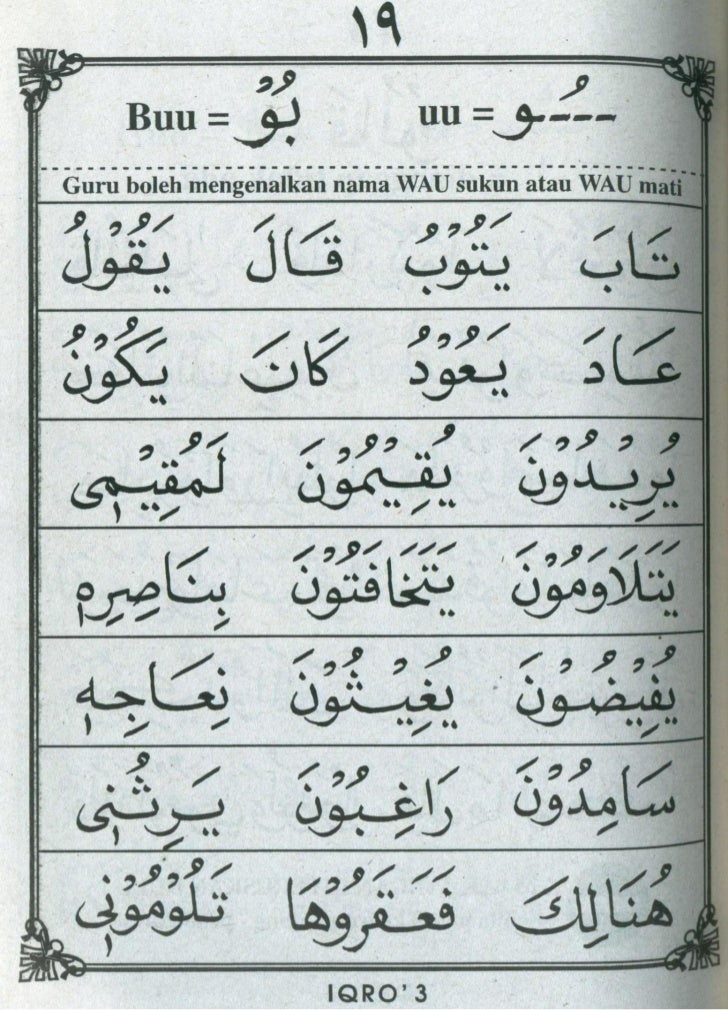 ١٩
ـُـو = uu    بُوْ = Buu
Guru boleh mengenalkan nama WAU sukun atau WAU mati
تَابَ يَتُوْبُ قَالَ يَقُوْلُ
عَادَ يَعُوْدُ كَانَ يَكُوْنُ
يُرِيْدُوْنَ يُقِيْمُوْنَ لَمُقِيْمِى
يَتَلَاوَمُوْنَ يَتَخَافَتُوْنَ بِنَاصِرِهٖ
يُفِيْضُوْنَ يُغِيْثُوْنَ نِعَاجِهٖ
سَامِدُوْنَ رَاغِبُوْنَ يَرِثُنِى
هُنَالِكَ فَعَقَرُوْهَا تَلُوْمُوْنِى
IQRO' 3